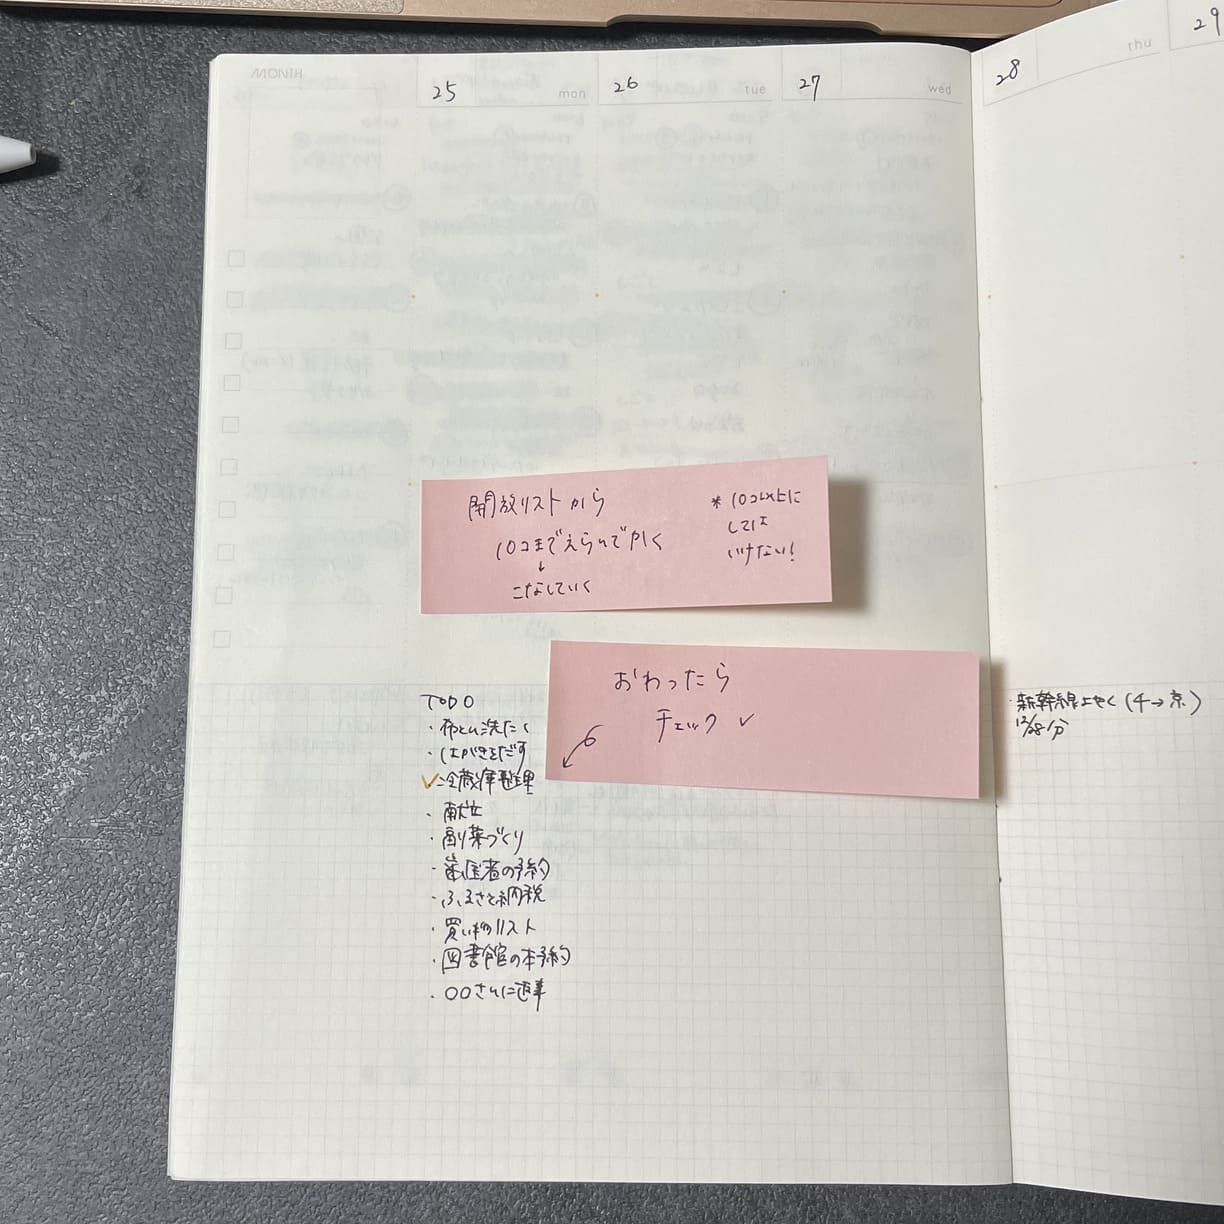 MONTH
25 mon
26 tue
27 wed
28 thu
29
開放リストから
10コまでえらんで書く
↓
こなしていく
* 10コ以上に
しては
いけない!
おわったら
チェック ✓
TODO
・布とん洗たく
・はがきをだす
✓・冷蔵庫整理
・献立
・副菜づくり
・歯医者の予約
・ふるさと納税
・買い物リスト
・図書館の本予約
・〇〇さんに返事
・新幹線よやく(チ→京)
12/28分